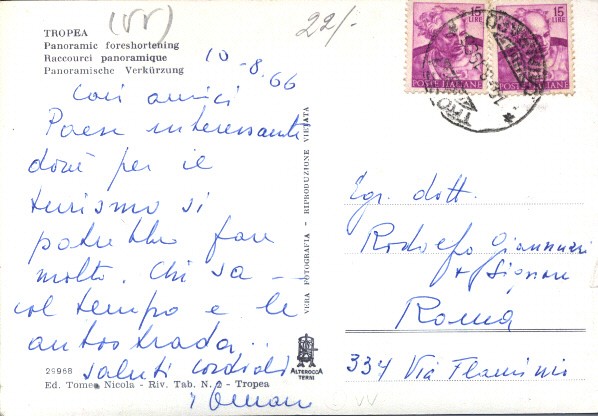 (VV)
22/-
TROPEA
Panoramic foreshortening
Raccourci panoramique
Panoramische Verkürzung
10-8.66
Cari amici
Paese interessante
dove per il
turismo si
potrebbe fare
molto. Chi sa –
col tempo e le
autostrada...
saluti cordiali
29968
Ed. Tomeo Nicola - Riv. Tab. N. 2 - Tropea
VERA FOTOGRAFIA - RIPRODUZIONE VIETATA
ALTEROCCA
TERNI
15
LIRE
POSTE ITALIANE
15
LIRE
POSTE ITALIANE
Egr. dott.
Rodolfo Giannuzzi
& Signora
Roma
334 Via Flaminia